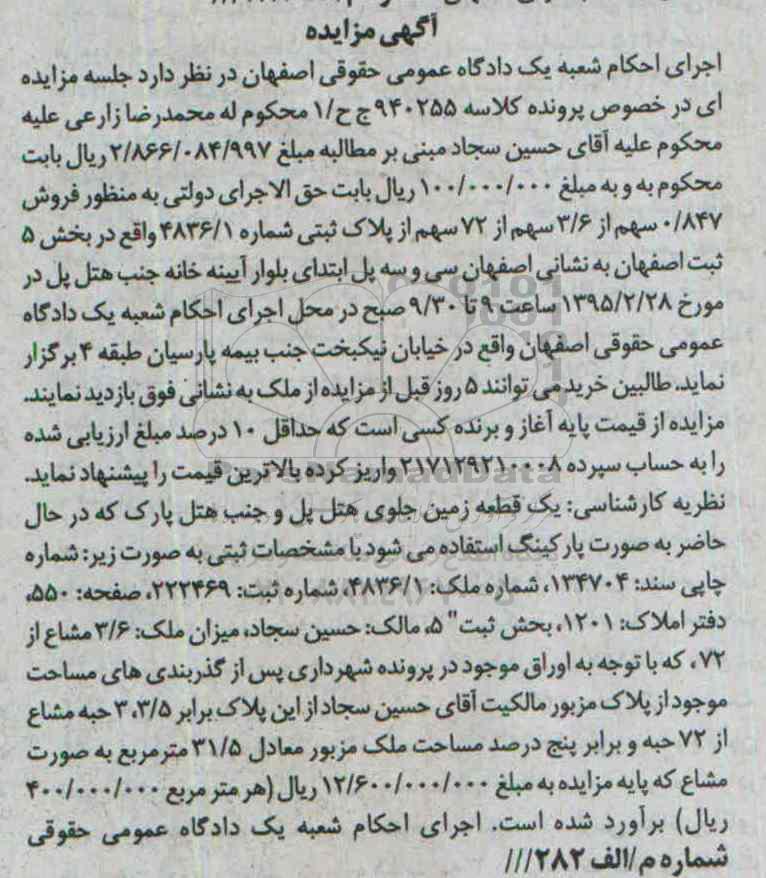 آگهی مزایده
اجرای احکام شعبه یک دادگاه عمومی حقوقی اصفهان در نظر دارد جلسه مزایده
ای در خصوص پرونده کلاسه ۹۴۰۲۵۵ ج ح/۱ محکوم له محمدرضا زارعی علیه
محکوم علیه آقای حسین سجاد مبنی بر مطالبه مبلغ ۲/۸۶۶/۰۸۴/۹۹۷ ریال بابت
محکوم به و به مبلغ ۱۰۰/۰۰۰/۰۰۰ ریال بابت حق الاجرای دولتی به منظور فروش
۰/۸۴۷ سهم از ۳/۶ سهم از ۷۲ سهم از پلاک ثبتی شماره ۴۸۳۶/۱ واقع در بخش ۵
ثبت اصفهان به نشانی اصفهان سی و سه پل ابتدای بلوار آیینه خانه جنب هتل پل در
مورخ ۱۳۹۵/۲/۲۸ ساعت ۹ تا ۹/۳۰ صبح در محل اجرای احکام شعبه یک دادگاه
عمومی حقوقی اصفهان واقع در خیابان نیکبخت جنب بیمه پارسیان طبقه ۴ برگزار
نماید. طالبین خرید می توانند ۵ روز قبل از مزایده از ملک به نشانی فوق بازدید نمایند.
مزایده از قیمت پایه آغاز و برنده کسی است که حداقل ۱۰ درصد مبلغ ارزیابی شده
را به حساب سپرده ۲۱۷۱۲۹۲۱۰۰۰۸ واریز کرده بالاترین قیمت را پیشنهاد نماید.
نظریه کارشناسی: یک قطعه زمین جلوی هتل پل و جنب هتل پارک که در حال
حاضر به صورت پارکینگ استفاده می شود با مشخصات ثبتی به صورت زیر: شماره
چاپی سند: ۱۳۴۷۰۴، شماره ملک: ۴۸۳۶/۱، شماره ثبت: ۲۲۲۴۶۹، صفحه: ۵۵۰،
دفتر املاک: ۱۲۰۱، بخش ثبت" ۵، مالک: حسین سجاد، میزان ملک: ۳/۶ مشاع از
۷۲، که با توجه به اوراق موجود در پرونده شهرداری پس از گذربندی های مساحت
موجود از پلاک مزبور مالکیت آقای حسین سجاد از این پلاک برابر ۳،۳/۵ حبه مشاع
از ۷۲ حبه و برابر پنج درصد مساحت ملک مزبور معادل ۳۱/۵ مترمربع به صورت
مشاع که پایه مزایده به مبلغ ۱۲/۶۰۰/۰۰۰/۰۰۰ ریال (هر متر مربع ۴۰۰/۰۰۰/۰۰۰
ریال) برآورد شده است. اجرای احکام شعبه یک دادگاه عمومی حقوقی
شماره م/الف ۲۸۲///